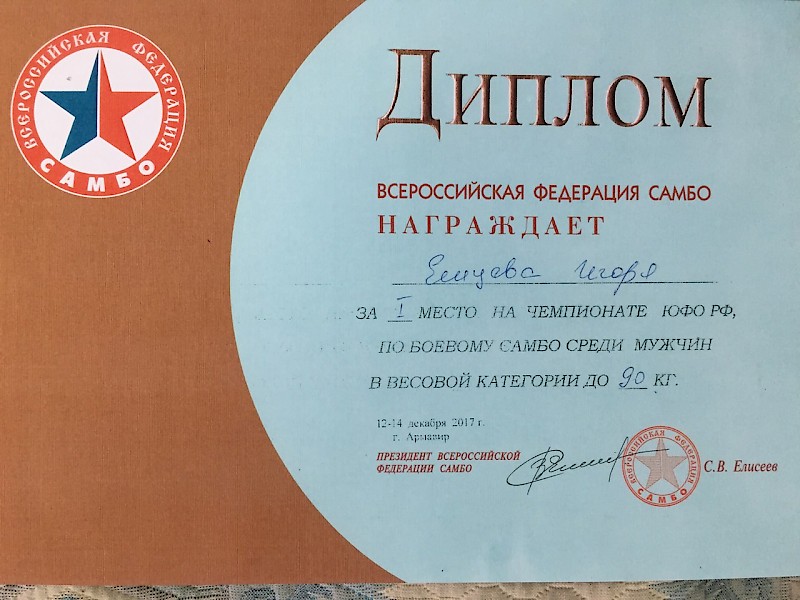 ВСЕРОССИЙСКАЯ ФЕДЕРАЦИЯ
САМБО
ДИПЛОМ
ВСЕРОССИЙСКАЯ ФЕДЕРАЦИЯ САМБО
НАГРАЖДАЕТ
Емцева Игоря
ЗА I МЕСТО НА ЧЕМПИОНАТЕ ЮФО РФ,
ПО БОЕВОМУ САМБО СРЕДИ МУЖЧИН
В ВЕСОВОЙ КАТЕГОРИИ ДО 90 КГ.
12-14 декабря 2017 г.
г. Армавир
ПРЕЗИДЕНТ ВСЕРОССИЙСКОЙ
ФЕДЕРАЦИИ САМБО
ВСЕРОССИЙСКАЯ ФЕДЕРАЦИЯ
САМБО
С.В. Елисеев